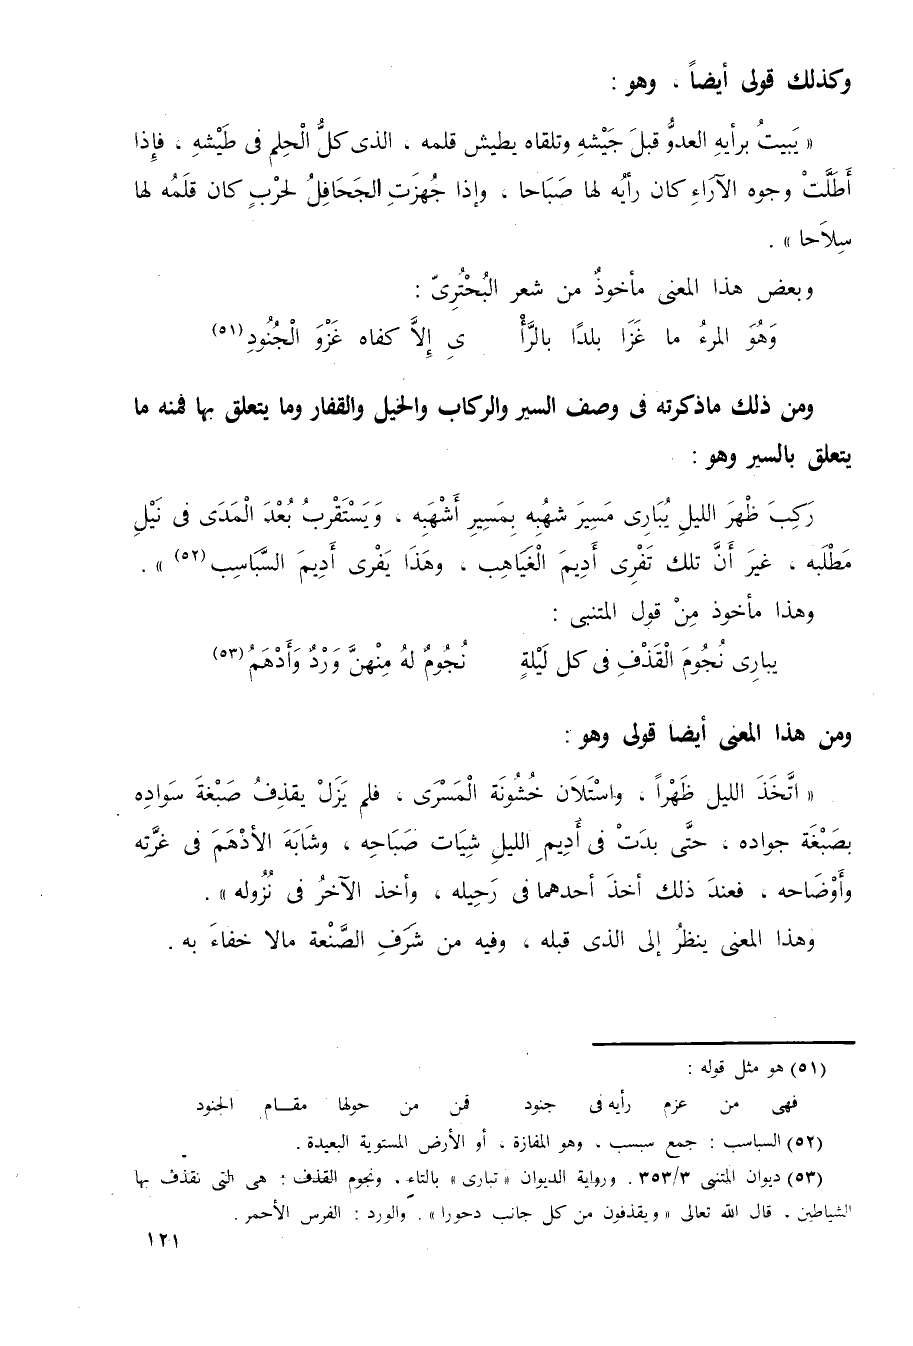 وكذلك قولى أيضاً ، وهو :
« يَبيتُ برأيهِ العدوُّ قبلَ جَيْشهِ وتلقاه يطيش قلمه ، الذى كلُّ الْحِلمِ فى طَيْشهِ ، فإذا
أَطَلَّتْ وجوه الآرَاءِ كان رأيُه لها صَبَاحا ، وإذا جُهزَتِ الجَحَافِلُ لحَرْبٍ كان قلَمُه لها
سِلاَحا » .
وبعض هذا المعنى مأخوذٌ من شعر البُحْتُرِىّ :
وَهُوَ المرءُ ما غَزَا بلدًا بالرَّأْ ىِ إلاَّ كفاه غَزْوَ الْجُنُودِ (٥١)
ومن ذلك ماذكرته فى وصف السير والركاب والخيل والقفار وما يتعلق بها فمنه ما
يتعلق بالسير وهو :
رَكِبَ ظْهرَ الليلِ يُبَارِى مَسِيرَ شهُبِه بِمَسِيرِ أَشْهَبِه ، وَيَسْتَقْرِبُ بُعْدَ الْمَدَى فى نَيْلِ
مَطْلَبه ، غيرَ أَنَّ تلك تَفْرِى أَدِيمَ الْغَيَاهِب ، وهَذَا يَفْرِى أَدِيمَ السَّبَاسِب (٥٢) » .
وهذا مأخوذ مِنْ قول المتنبى :
يبارِى نُجُومَ الْقَذْفِ فى كل لَيْلةٍ نُجُومٌ لهُ مِنْهنَّ وَرْدٌ وَأَدْهَمُ (٥٣)
ومن هذا المعنى أيضا قولى وهو :
« اتَّخَذَ الليل ظَهْراً ، واسْتَلَان خُشُونَة الْمَسْرَى ، فلم يَزَلْ يقذِفُ صَبْغةَ سَواده
بصَبْغَة جواده ، حتَّى بدَتْ فى أَدِيمِ الليلِ شِيَات صَبَاحِه ، وشَابَهَ الأدْهَمَ فى غرَّتِه
وأَوْضَاحه ، فعندَ ذلك أخذَ أحدهما فى رَحِيله ، وأخذ الآخرُ فى نُزُوله » .
وهذا المعنى ينظرُ إلى الذى قبله ، وفيه من شَرَفِ الصَّنْعة مالا خفاءَ به .
(٥١) هو مثل قوله :
فهى من عزم رأيه فى جنود فمن من حولها مقام الجنود
(٥٢) السباسب : جمع سبسب ، وهو المفازة ، أو الأرض المستوية البعيدة .
(٥٣) ديوان المتنبى ٣/٣٥٣ . ورواية الديوان « تبارى » بالتاء . ونجوم القذف : هى التى تقذف بها
الشياطين . قال الله تعالى « ويقذفون من كل جانب دحورا » . والورد : الفرس الأحمر .
١٢١